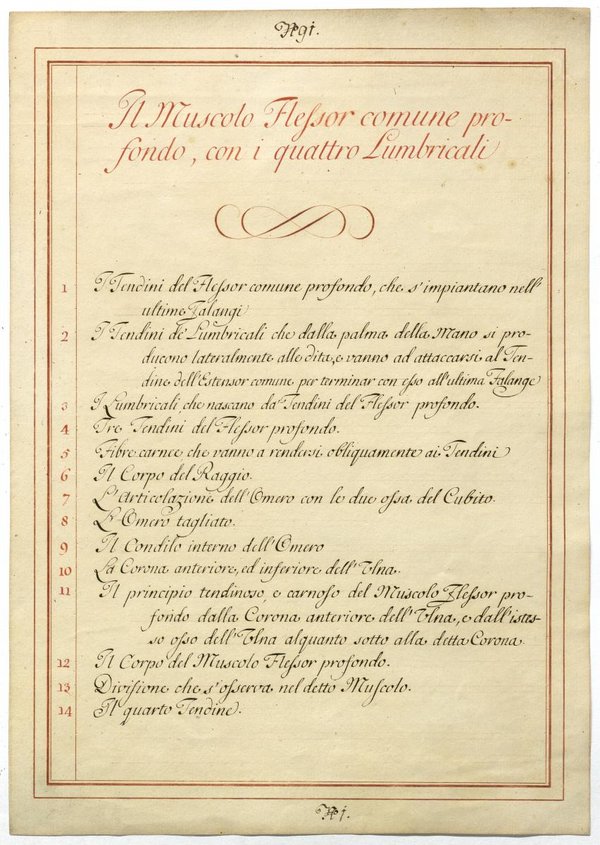 N 91.
Il Muscolo Flessor comune pro-
fondo, con i quattro Lumbricali
1 I Tendini del Flessor comune profondo, che s'impiantano nell'
ultime Falangi
2 I Tendini de' Lumbricali che dalla palma della Mano si pro-
ducono lateralmente alle dita, e vanno ad attaccarsi al Ten-
dine dell'Estensor comune per terminar con esso all'ultima Falange
3 I Lumbricali, che nascano da Tendini del Flessor profondo.
4 Tre Tendini del Flessor profondo.
5 Fibre carnee che vanno a rendersi obliquamente ai Tendini
6 Il Corpo del Raggio.
7 L'Articolazione dell'Omero con le due ossa del Cubito.
8 L'Omero tagliato.
9 Il Condilo interno dell'Omero
10 La Corona anteriore, ed inferiore dell'Ulna.
11 Il principio tendinoso, e carnoso del Muscolo Flessor pro-
fondo dalla Corona anteriore dell'Ulna, e dall'istes-
so osso dell'Ulna alquanto sotto alla detta Corona
12 Il Corpo del Muscolo Flessor profondo.
13 Divisione che s'osserva nel detto Muscolo.
14 Il quarto Tendine.